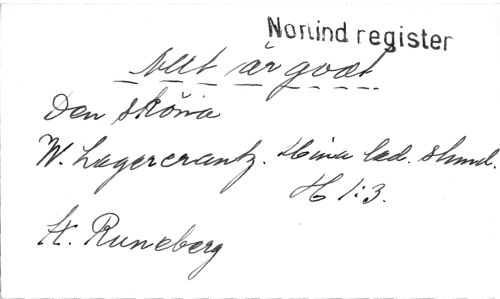 Norlind register
Allt är godt
Den sköna
W. Lagercrantz. Mina led. stund.
H 1:3.
H. Runeberg